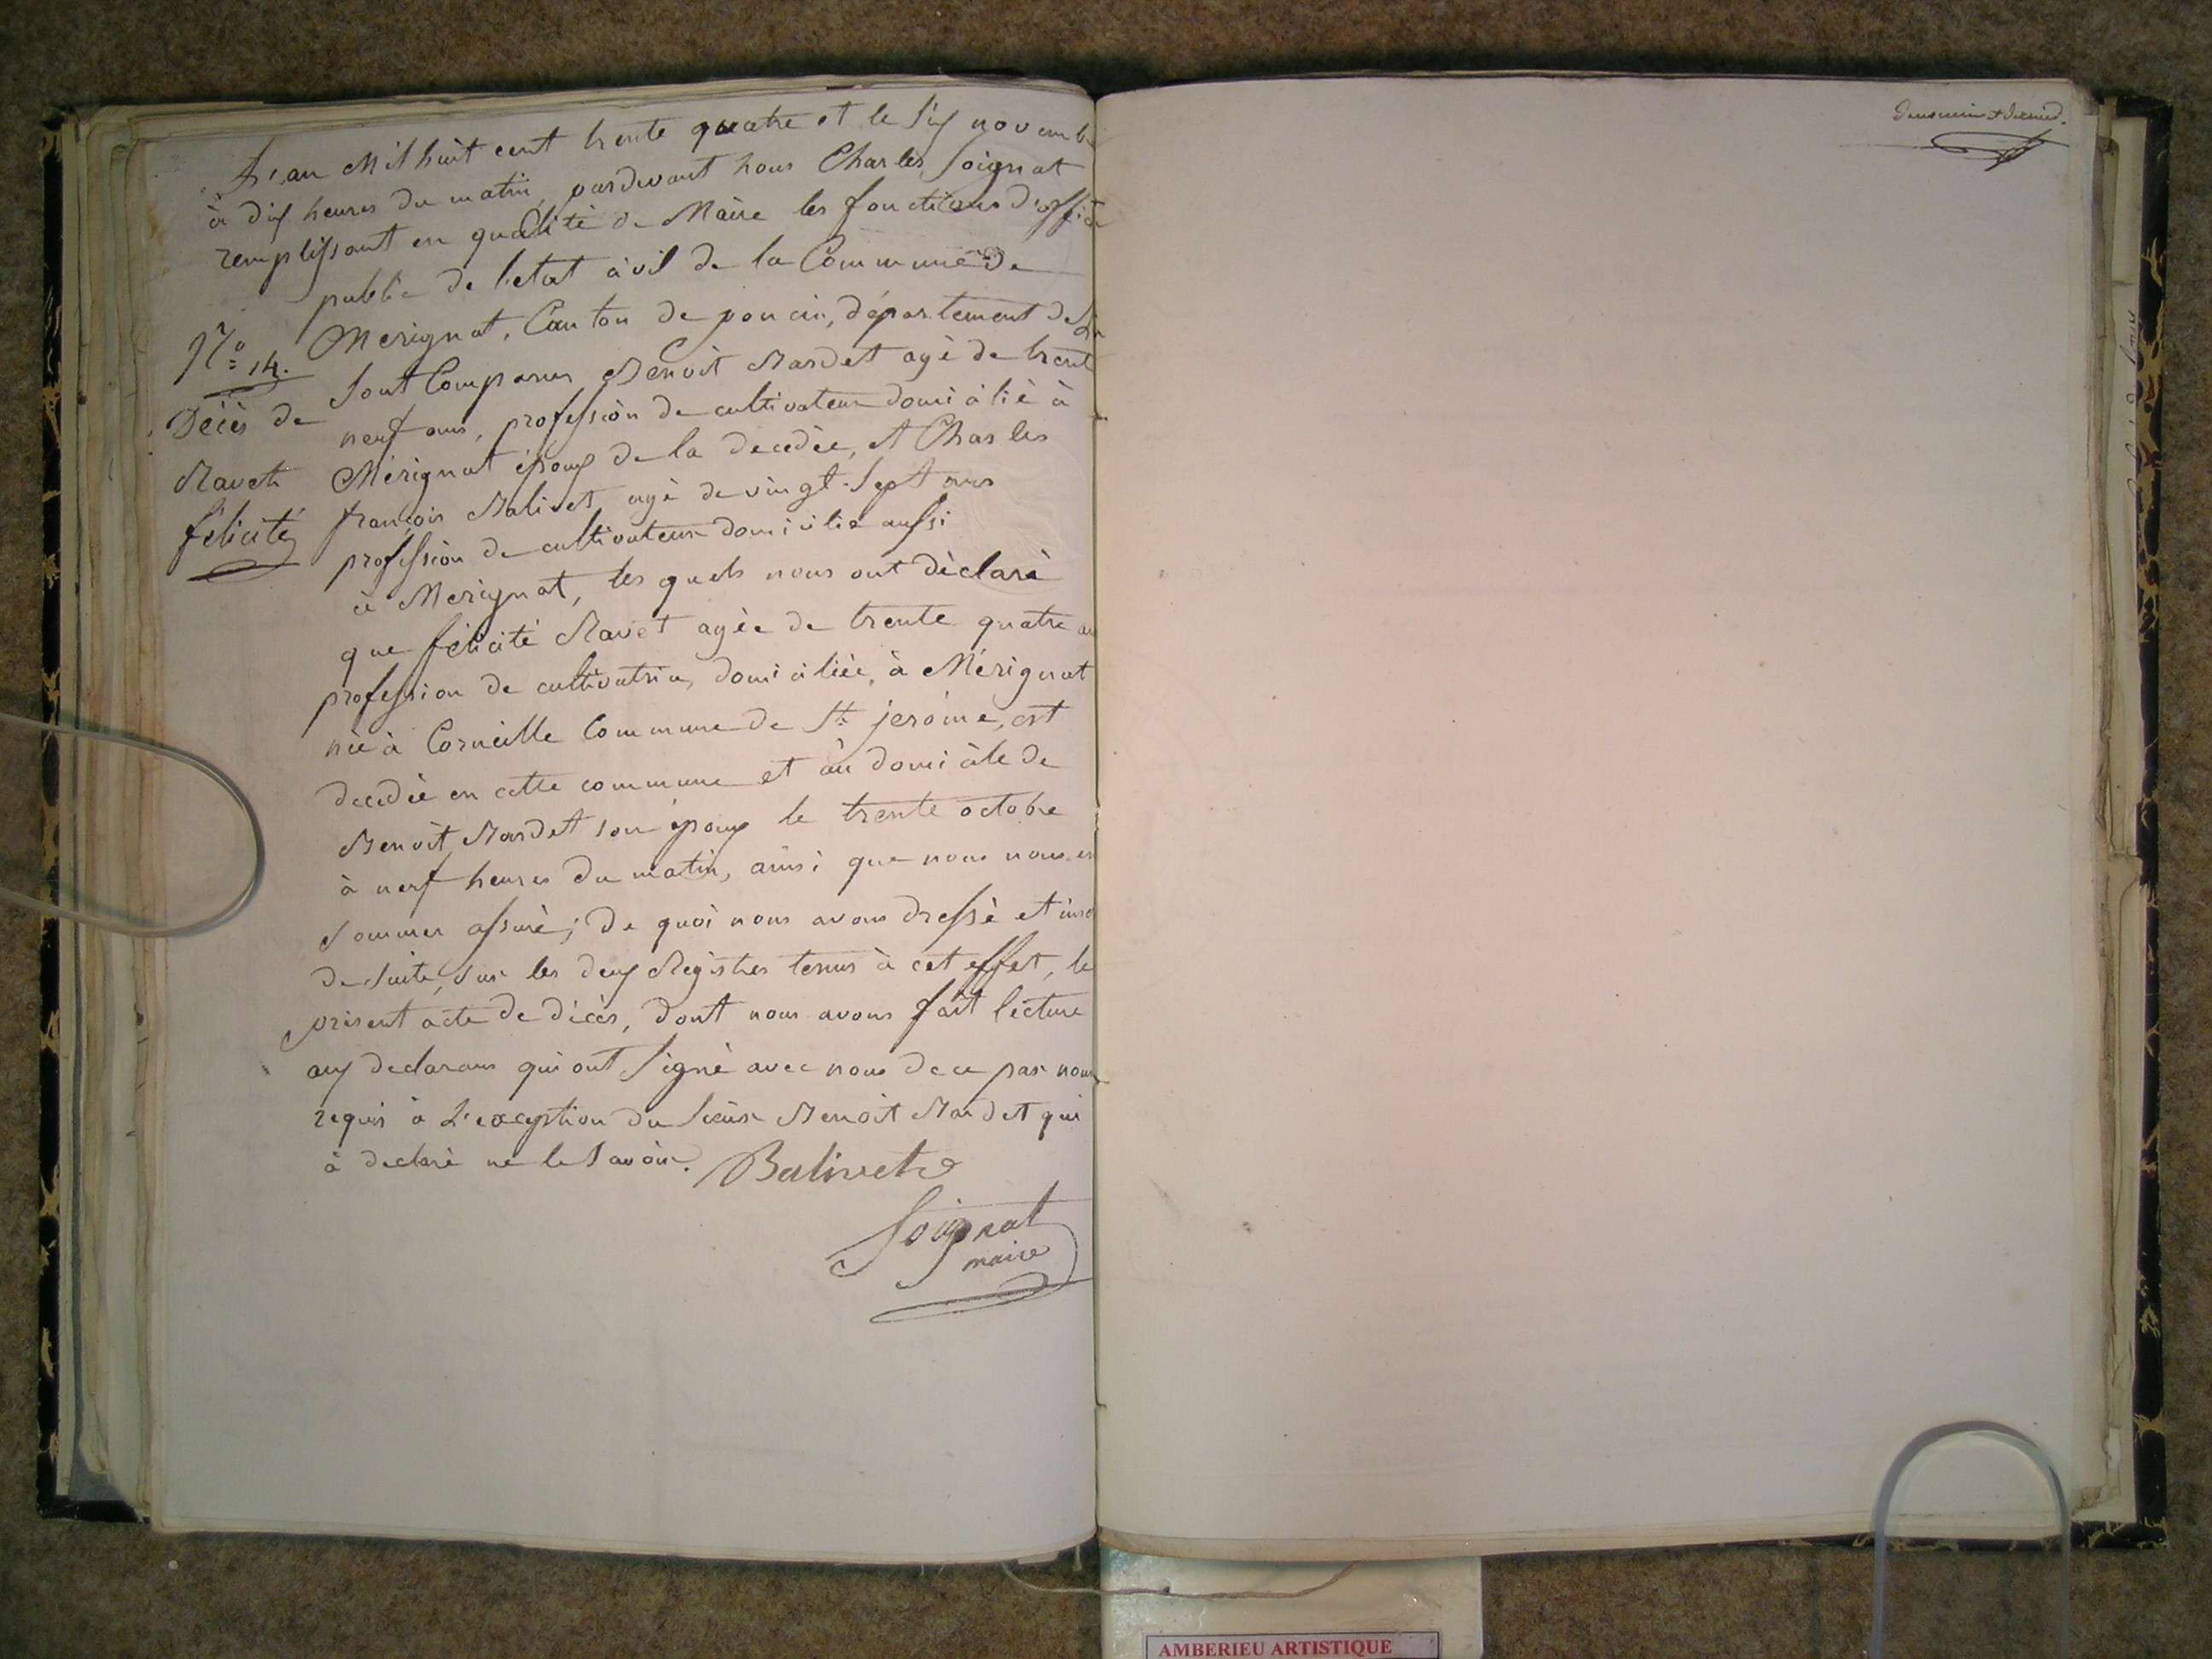 L'an Mil huit cent trente quatre et le six novemb
à dix heures du matin, pardevant nous Charles Soignat
remplissant en qualité de Maire les fonctions d'offi
public de l'etat civil de la Commune de
Merignat, Canton de poncin, département de
N.o 14.
Sont Comparus Benoit Mardet agé de trent
Décès de
neuf ans, profession de cultivateur domicilié à
Ravet
Mérignat époux de la decedée, et Charles
félicité
françois Balivet agé de vingt-sept ans
profession de cultivateur domicilié aussi
à Merignat, les quels nous ont déclaré
que félicité Ravet agée de trente quatre an
profession de cultivatrice, domiciliée, à Mérignat
née à Corneille Commune de St. jerome, est
decedée en cette commune et au domicile de
Benoit Mardet son époux le trente octobre
à neuf heures du matin, ainsi que nous nous en
sommes assuré; de quoi nous avons dressé et insc
de suite, sur les deux Registres tenus à cet effet, le
présent acte de décès, dont nous avons fait lecture
aux declarans qui ont signé avec nous de ce par nous
requis à L'exception du Sieur Benoit Mardet qui
à declaré ne le savoir. Balivet
Soignat
maire
AMBERIEU ARTISTIQUE